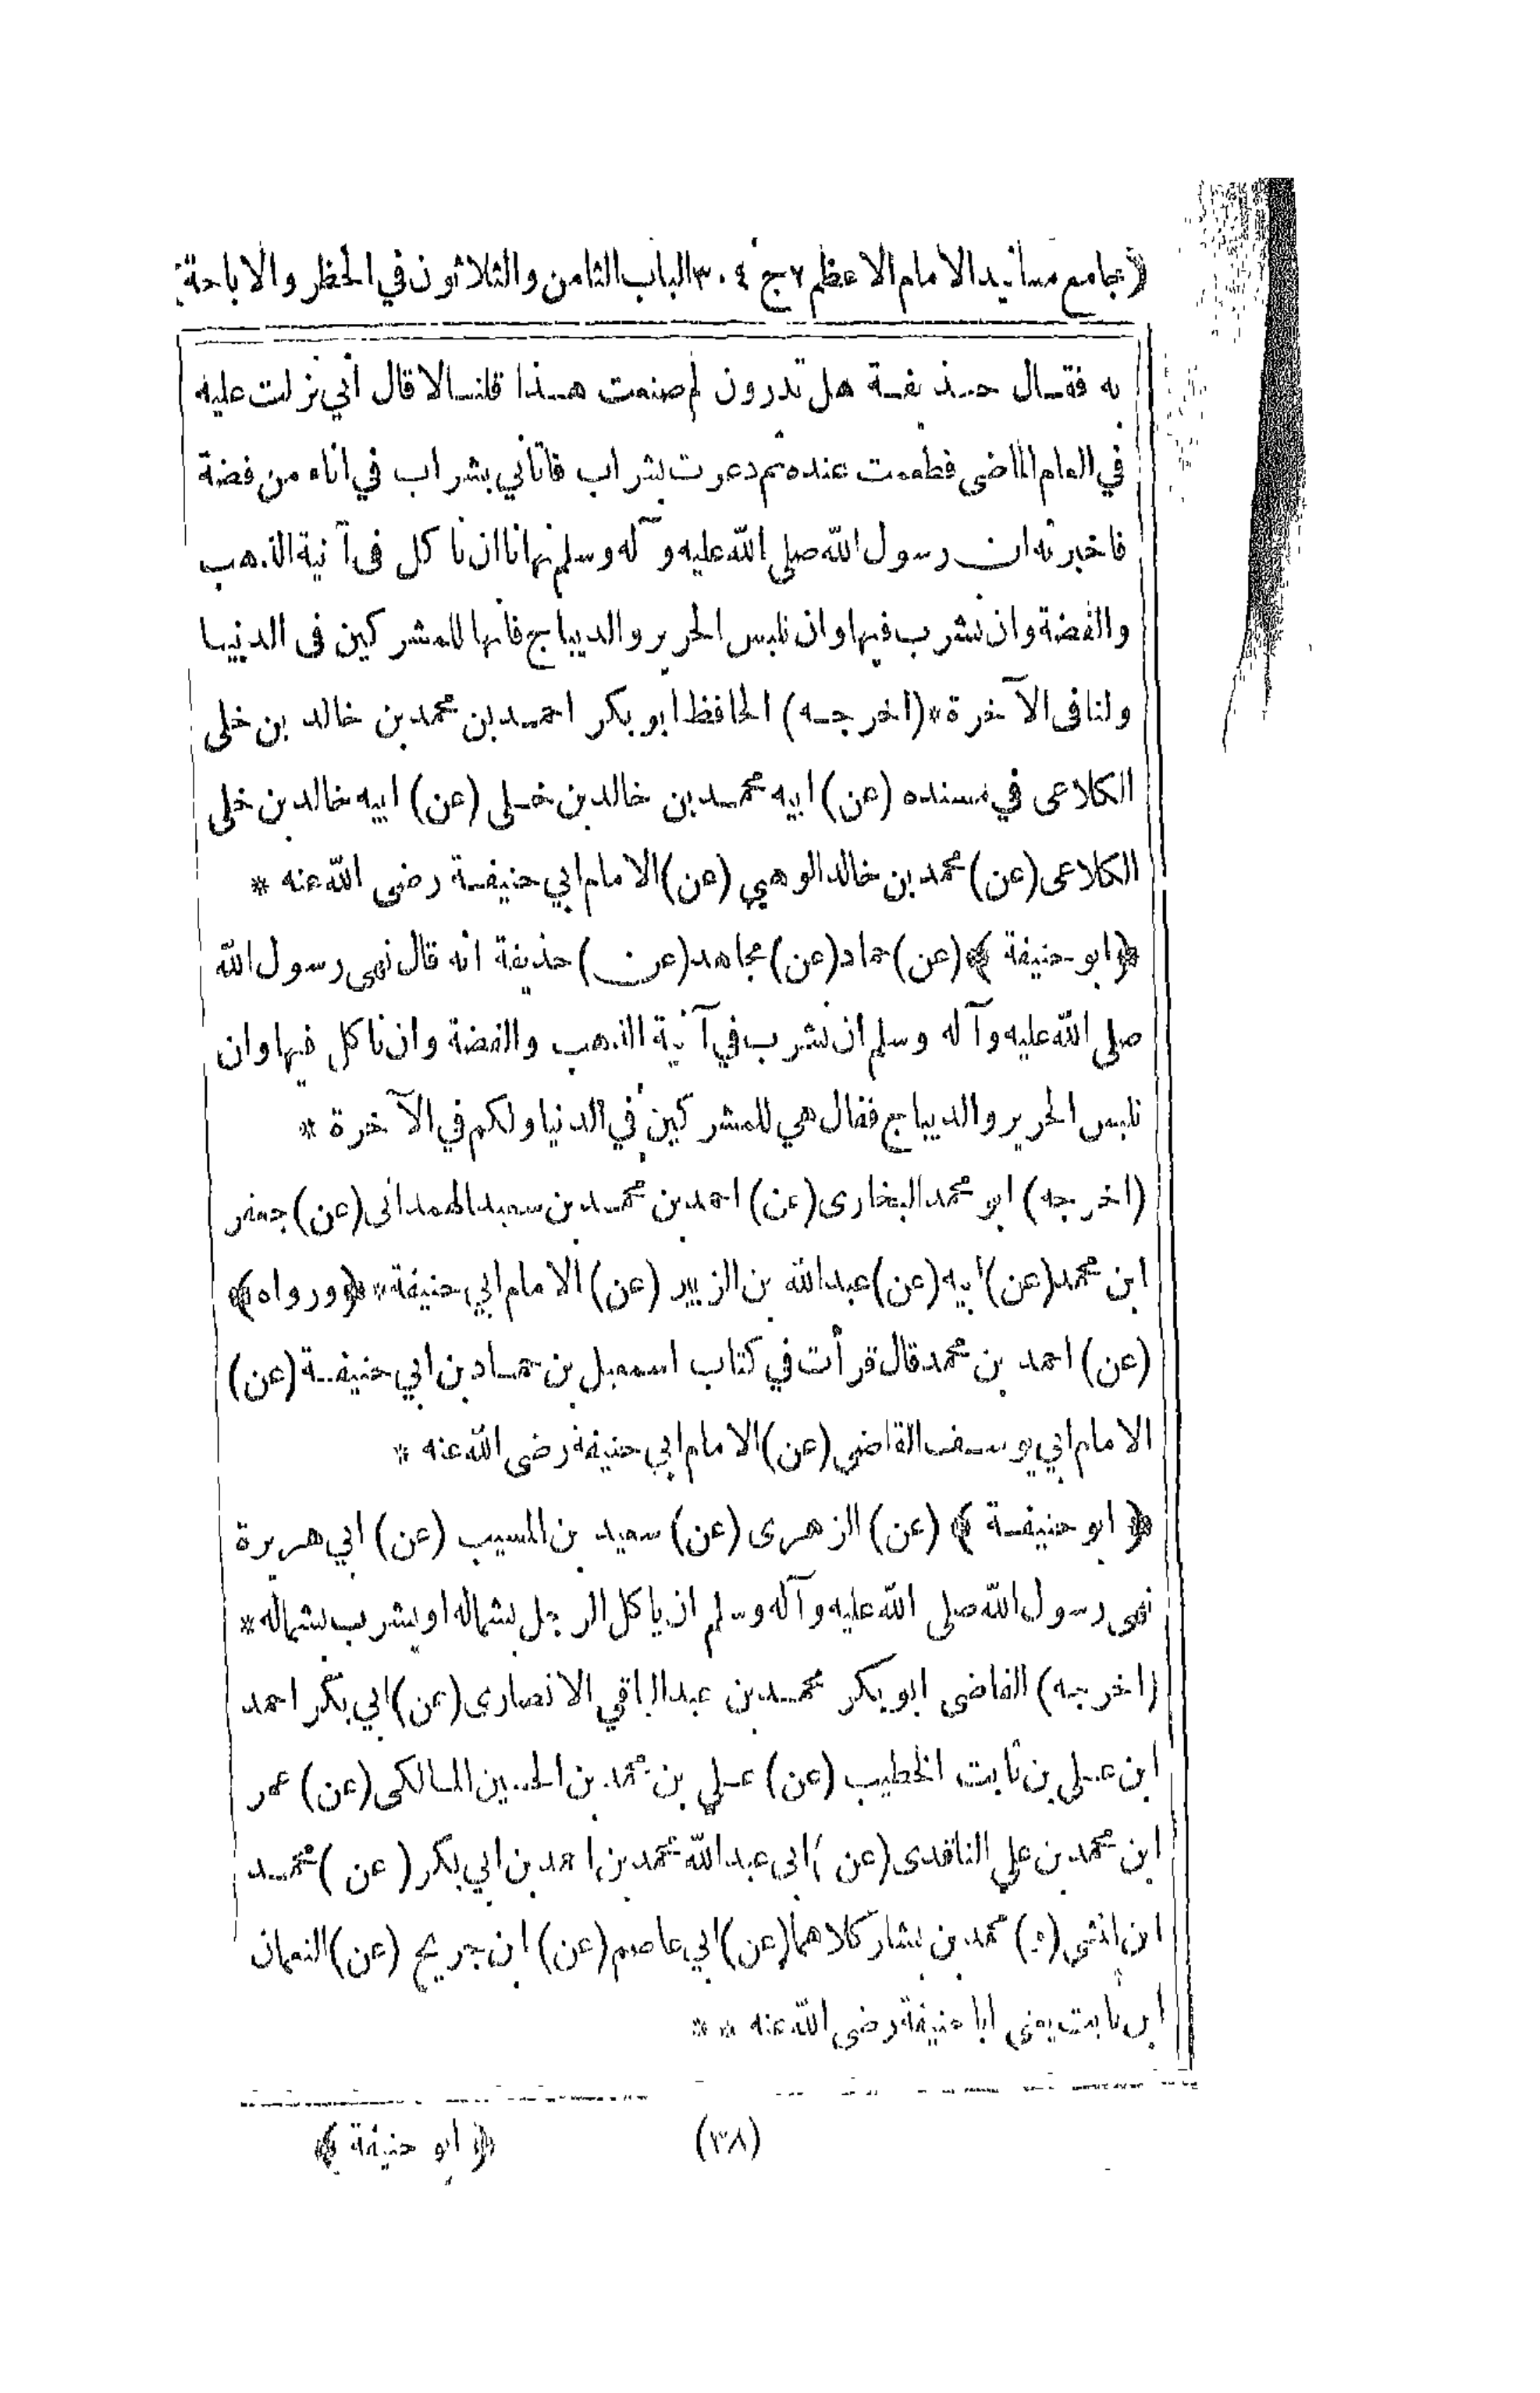 (جامع مسانيد الامام الاعظم ج٢ ٣٠٤ الباب الثامن والثلاثون في الحظر والاباحة
به فقال حذيفة هل تدرون لم صنعت هذا قلنا لا قال أني نزلت عليه
في العام الماضى فطعمت عنده ثم دعوت بشراب فاتأني بشراب في اناء من فضة
فاخبرته ان رسول الله صلى الله عليه وآله وسلم نهانا ان نأكل فى آنية الذهب
والفضة وان نشرب فيها وان نلبس الحرير والديباج فانها للمشركين فى الدنيا
ولنا فى الآخرة * (اخرجه) الحافظ ابو بكر احمد بن محمد بن خالد بن خلى
الكلاعى في مسنده (عن) ابيه محمد بن خالد بن خلى (عن) ابيه خالد بن خلى
الكلاعى (عن) محمد بن خالد الوهبي (عن) الامام ابي حنيفة رضى الله عنه *
﴿ابو حنيفة﴾ (عن) حماد (عن) مجاهد (عن) حذيفة انه قال نهى رسول الله
صلى الله عليه وآله وسلم ان نشرب في آنية الذهب والفضة وان نأكل فيها وان
نلبس الحرير والديباج فقال هي للمشركين في الدنيا ولكم في الآخرة *
(اخرجه) ابو محمد البخارى (عن) احمد بن محمد بن سعيد الهمدانى (عن) جعفر
ابن محمد (عن) ابيه (عن) عبد الله بن الزبير (عن) الامام ابي حنيفة * ﴿ورواه﴾
(عن) احمد بن محمد قال قرأت في كتاب اسمعيل بن حماد بن ابي حنيفة (عن)
الامام ابي يوسف القاضي (عن) الامام ابي حنيفة رضى الله عنه *
﴿ابو حنيفة﴾ (عن) الزهرى (عن) سعيد بن المسيب (عن) ابي هريرة
نهى رسول الله صلى الله عليه وآله وسلم ان يأكل الرجل بشماله او يشرب بشماله *
(اخرجه) القاضى ابو بكر محمد بن عبد الباقي الانصارى (عن) ابي بكر احمد
ابن علي بن ثابت الخطيب (عن) علي بن محمد بن الحسين المالكى (عن) عمر
ابن محمد بن علي الناقدى (عن) ابى عبد الله محمد بن احمد بن ابي بكر (عن) محمد
ابن المثنى (و) محمد بن بشار كلاهما (عن) ابي عاصم (عن) ابن جريج (عن) النعمان
ابن ثابت يعنى ابا حنيفة رضى الله عنه * *
(٣٨) ﴿ابو حنيفة﴾